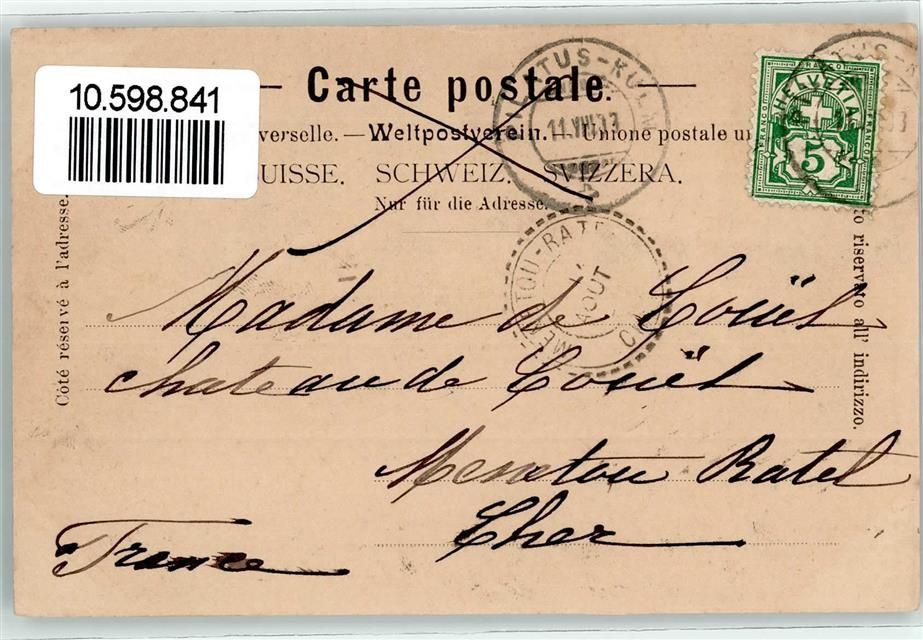 10.598.841
Carte postale.
verselle. — Weltpostverein. — Unione postale un
UISSE. SCHWEIZ. SVIZZERA.
Nur für die Adresse.
Côté réservé à l'adresse.
to riservato all' indirizzo.
TUS-KUL
11.VIII.
HELVETIA
FRANCO
FRANCO
5
MENETOU-RATEL
AOUT
Madame de Couët
chateau de Couët
Menetou Ratel
Cher
France